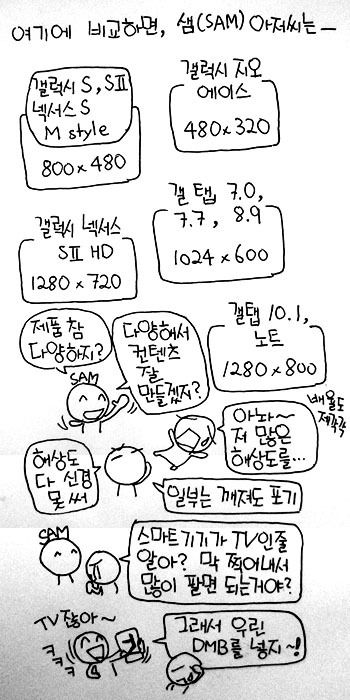 여기에 비교하면, 샘(SAM) 아저씨는—
갤럭시 S, SⅡ
넥서스 S
M style
800 x 480
갤럭시 지오
에이스
480 x 320
갤럭시 넥서스
SⅡ HD
1280 x 720
갤 탭 7.0,
7.7, 8.9
1024 x 600
갤탭 10.1,
노트
1280 x 800
제품 참
다양하지?
SAM
다양해서
컨텐츠
잘
만들겠지?
배율도
제각각
아놔~
저 많은
해상도를...
해상도
다 신경
못 써
일부는 깨져도 포기
SAM
스마트기기가 TV인줄
알아? 막 찍어내서
많이 팔면 되는거야?
TV 잖아~
ㅋㅋㅋ
그래서 우린
DMB를 넣지~!